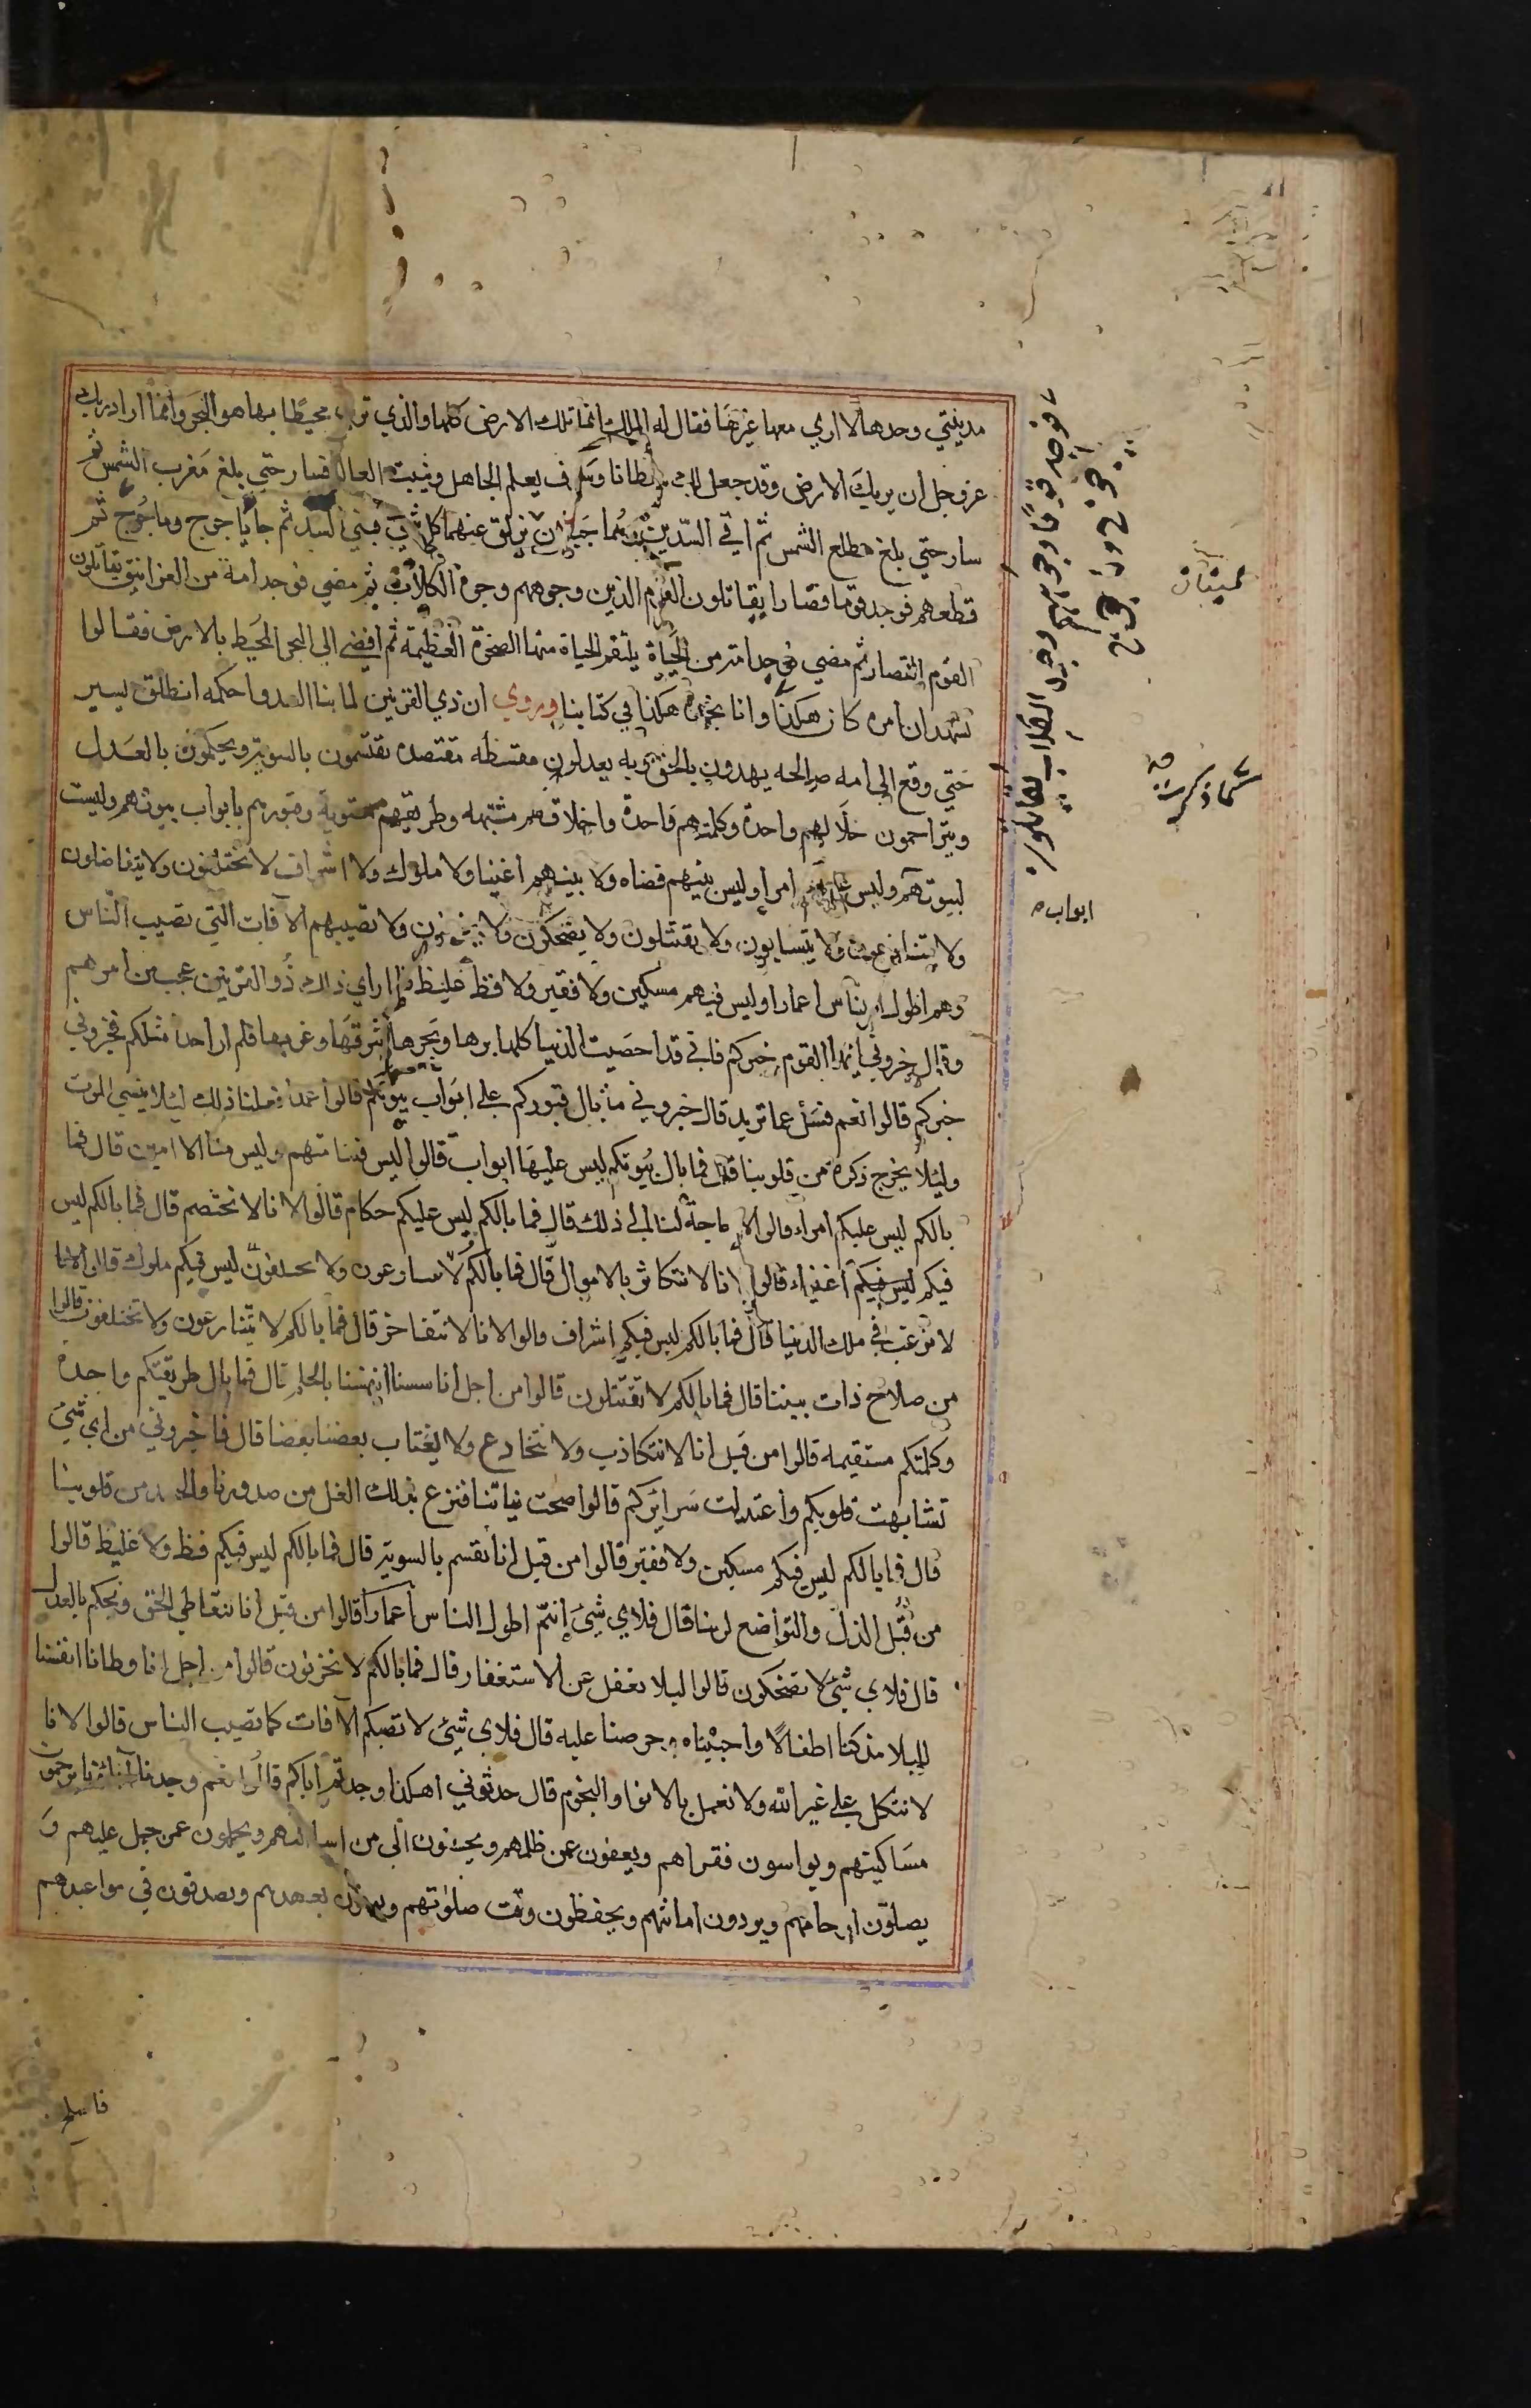 مدينتي وحدها لا اري معها غيرها فقال له الملك انما تلك الارض كلها والذي تري محيطا بها هو البحر وانما اراد ربك
عز وجل ان يريك الارض وقد جعل لك سلطانا وسوف يعلم الجاهل ويثبت العالم فسار حتي بلغ مغرب الشمس ثم
سار حتي بلغ مطلع الشمس ثم اتي السدين وهما جبلان يزلق عنهما كل شيء فبني السد ثم جا ياجوج وماجوج ثم
قطعهم فوجد قوما قصارا يقاتلون القوم الذين وجوههم وجوه الكلاب ثم مضي فوجد امة من الغرانيق يقاتلون
القوم القصار ثم مضي فوجد امة من الحياة يلتقم الحياة منها الصخرة العظيمة ثم افضي الي البحر المحيط بالارض فقالوا
نشهد ان امره كان هكذا وانا نجده هكذا في كتابنا وروي ان ذي القرنين لما بنا السد واحكمه انطلق يسير
حتي وقع الي امه صالحه يهدون بالحق وبه يعدلون مقتسطه مقتصده يقتسمون بالسوية ويحكمون بالعدل
ويتراحمون حالهم واحدة وكلمتهم واحدة واخلاقهم مشتبهه وطريقتهم مستوية وقبورهم بابواب بيوتهم وليست
لبيوتهم وليس عليهم امرا وليس بينهم قضاه ولا بينهم اغنيا ولا ملوك ولا اشراف لا يختلفون ولا يتفاضلون
ولا يتنازعون ولا يتسابون ولا يقتتلون ولا يضحكون ولا يحزنون ولا تصيبهم الآفات التي تصيب الناس
وهم اطول الناس اعمارا وليس فيهم مسكين ولا فقير ولا فظ غليظ فلما راي ذلك ذو القرنين عجب من امرهم
وقال خبروني ايها القوم خبركم فاني قد احصيت الدنيا كلها برها وبحرها شرقها وغربها فلم ار احدا مثلكم فخبروني
خبركم قالوا نعم فسئل عما تريد قال خبروني ما بال قبوركم علي ابواب بيوتكم قالوا عمدا فعلنا ذلك لئلا ينسي الموت
ولئلا يخرج ذكره من قلوبنا قال فما بال بيوتكم ليس عليها ابواب قالوا ليس فينا متهم وليس منا الا امين قال فما
بالكم ليس عليكم امراء قالوا لا حاجة لنا الي ذلك قال فما بالكم ليس عليكم حكام قالوا لانا لا نختصم قال فما بالكم ليس
فيكم ليس فيكم اغنياء قالوا لانا لا نتكاثر بالاموال قال فما بالكم ليس فيكم ملوك قالوا لانا
لا نرغب في ملك الدنيا قال فما بالكم ليس فيكم اشراف قالوا لانا لا نتفاخر قال فما بالكم لا تتنازعون ولا تختلفون قالوا
من صلاح ذات بيننا قال فما بالكم لا تقتتلون قالوا من اجل انا سسنا انفسنا بالحلم قال فما بال طريقتكم واحدة
وكلمتكم مستقيمه قالوا من قبل انا لا نتكاذب ولا نتخادع ولا يغتاب بعضنا بعضا قال فاخبروني من اي شيء
تشابهت قلوبكم واعتدلت سرائركم قالوا صحت نياتنا فنزع بذلك الغل من صدورنا والحسد من قلوبنا
قال فما بالكم ليس فيكم مسكين ولا فقير قالوا من قبل انا نقسم بالسوية قال فما بالكم ليس فيكم فظ ولا غليظ قالوا
من قبل الذل والتواضع لربنا قال فلاي شيء انتم اطول الناس اعمارا قالوا من قبل انا نتعاطي الحق ونحكم بالعدل
قال فلاي شيء لا تضحكون قالوا ليلا نغفل عن الاستغفار قال فما بالكم لا تحزنون قالوا من اجل انا وطانا انفسنا
للبلا مذ كنا اطفالا واحببناه وحرصنا عليه قال فلاي شيء لا تصبكم الآفات كما تصيب الناس قالوا لانا
لا نتكل علي غير الله ولا نعمل بالانوا والنجوم قال حدثوني اهكذا وجدتم اباكم قالوا نعم وجدنا آبائنا يرحمون
مساكينهم ويواسون فقراهم ويعفون عمن ظلمهم ويحسنون الي من اسا اليهم ويحلمون عمن جهل عليهم و
يصلون ارحامهم ويودون اماناتهم ويحفظون وقت صلوتهم ويوفون بعهدهم ويصدقون في مواعيدهم
ابواب